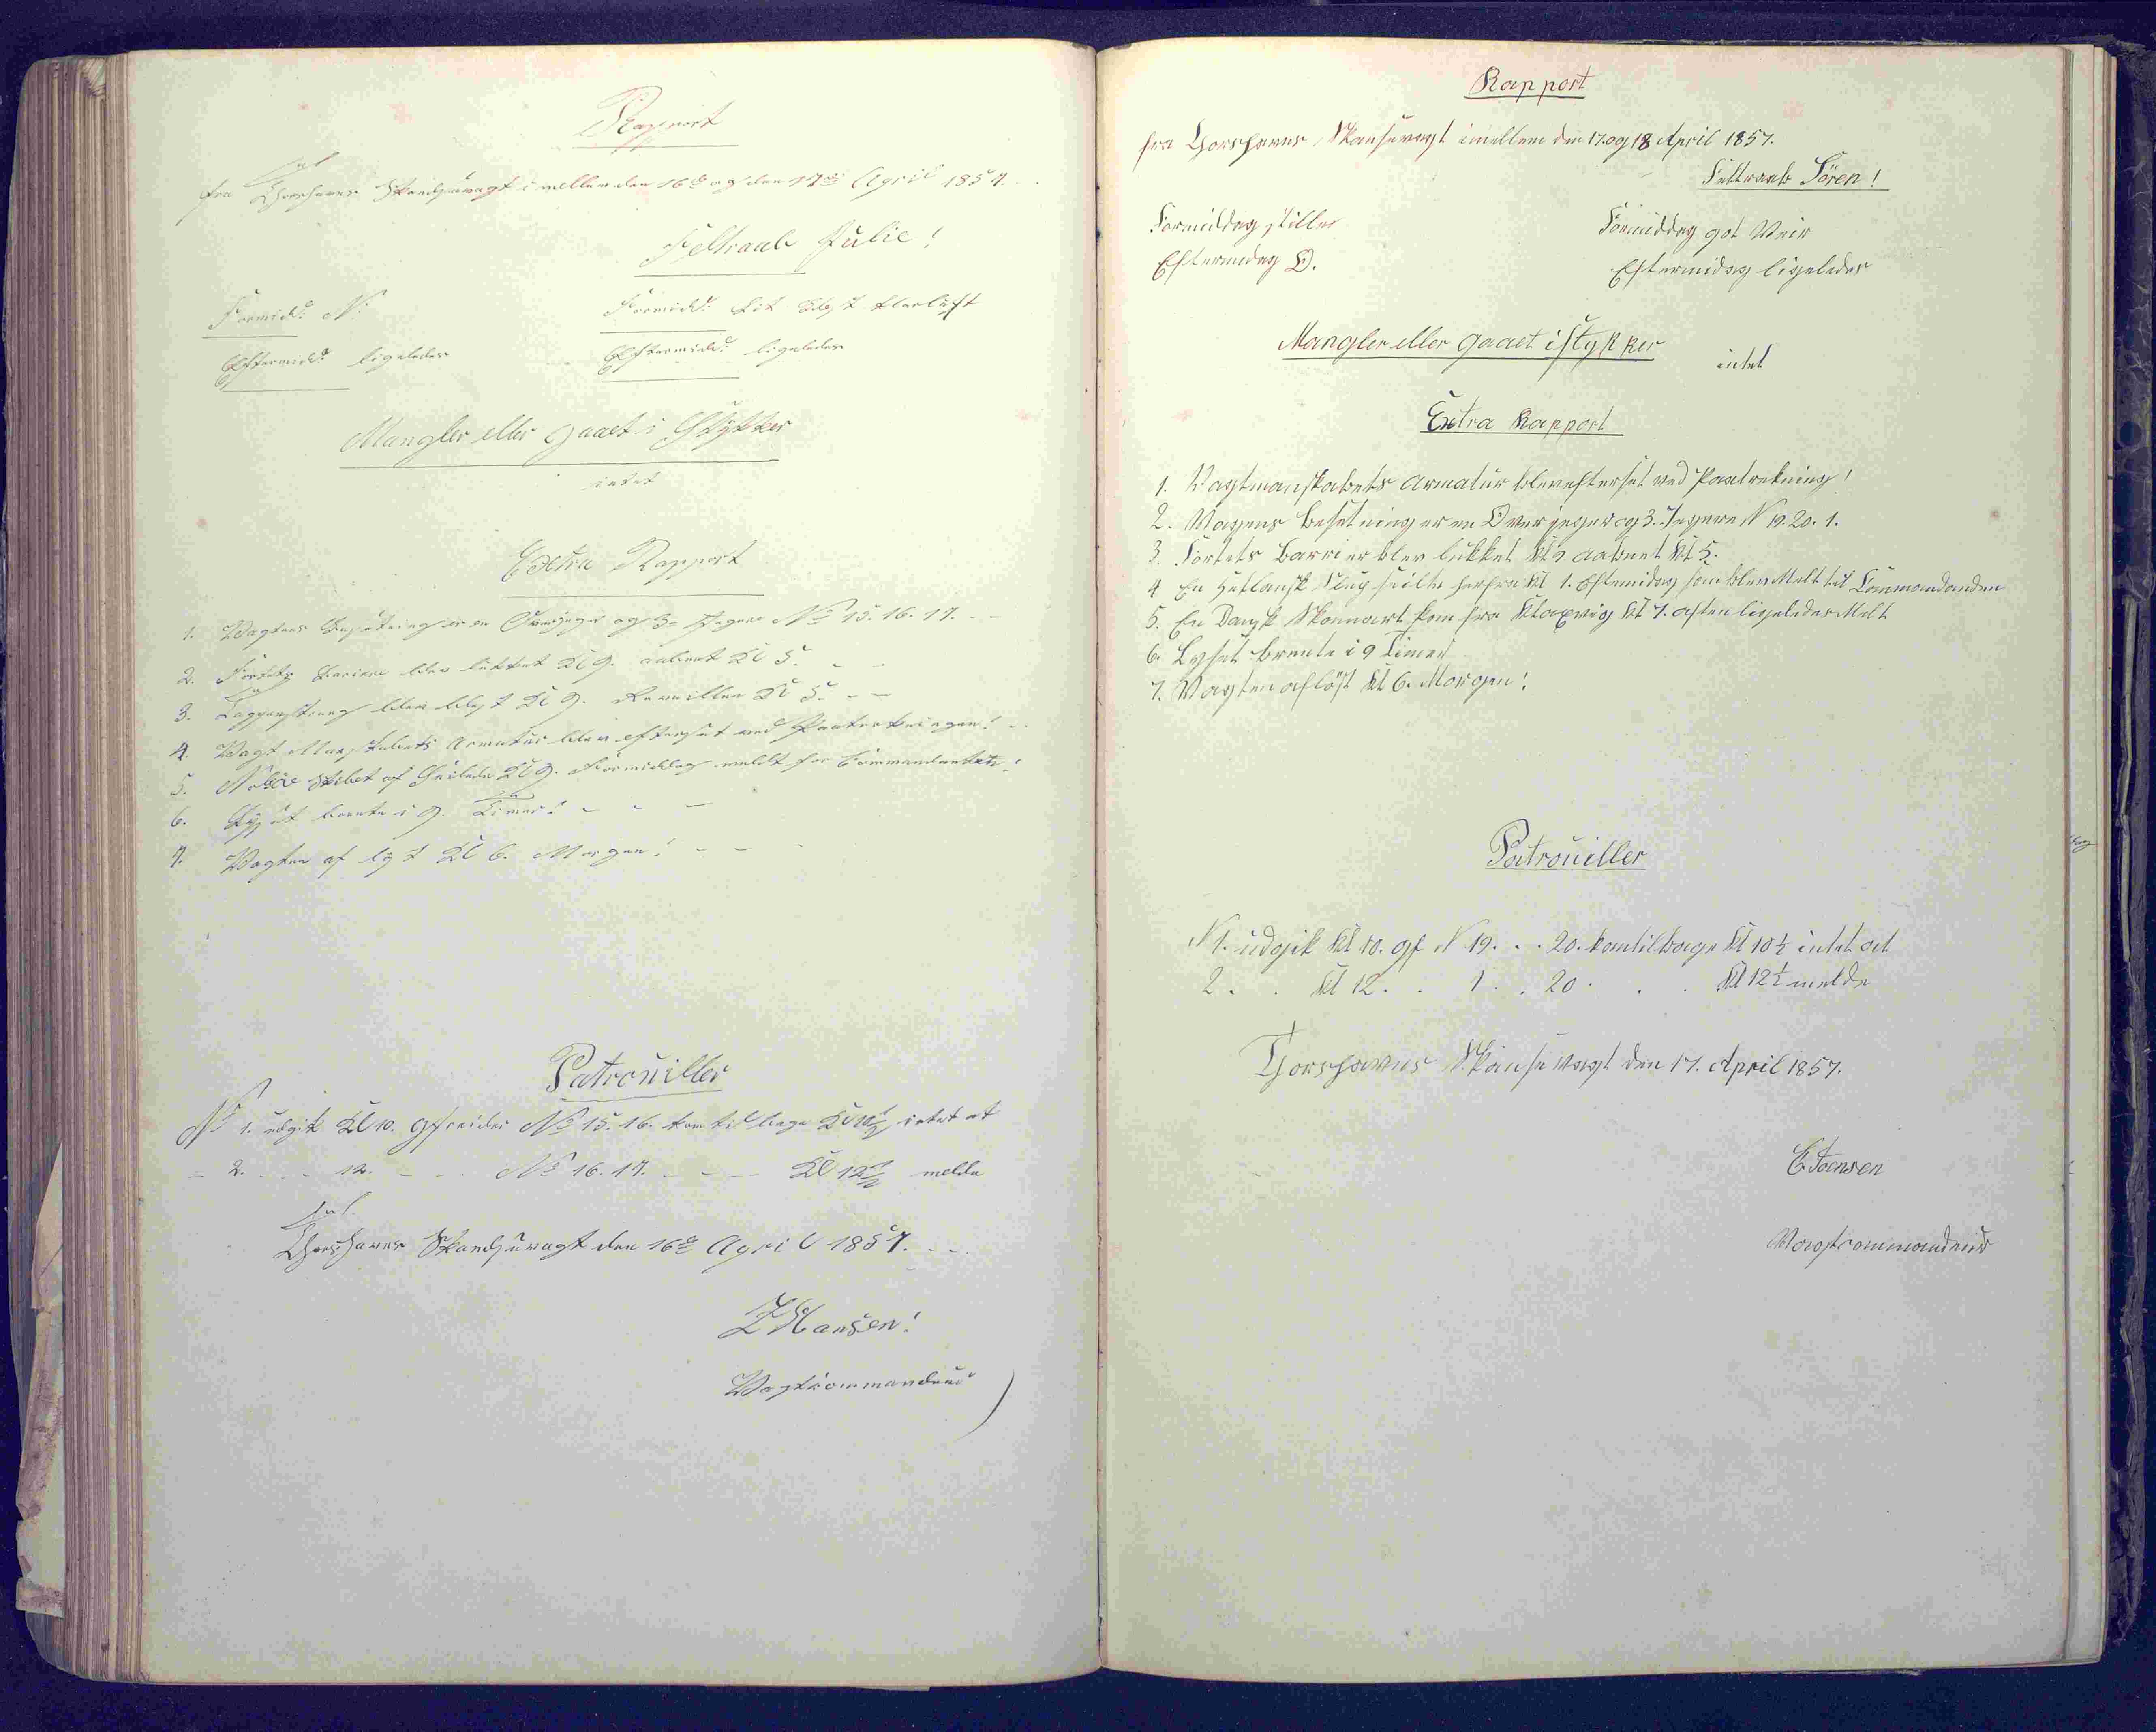 Rapport
fra Thorshavns Skandsevagt imellem den 16de og den 17de April 1857.
Feltraab Julie!
Formidd: N:
Formidd: lidt klarluft
Eftermidd: ligeledes
Eftermidd: ligeledes
Mangler eller gaaet i Stykker
intet
Extra Rapport
1. Vagtens Besætning er en Overjæger og 3de Jægere No 15. 16. 17.
2. Fortets Bariere blev lukket Kl 9. aabnet Kl 5.
3. Tappenstreg blev blæst Kl 9. Reveillen Kl 5.
4. Vagt Manskabets Armatur blev efterset ved Paatrækningen!
5. Skibet af Seilede Kl 9. Formiddag meldt for Commandanten!
6. Lyset brente i 9. Timer!
7. Vagten af løst Kl 6. Morgen!
Patrouiller
No 1. udgik Kl 10. Gefreider No 15. 16. kom tilbage Kl 10½ intet at
- 2. - - 12. - - No 16. 17. - - - Kl 12½ melde
Thorshavns Skandsevagt den 16de April 1857.
Z Hansen!
Vagtcommandeur
Rapport
fra Thorshavns Skansevagt imellem den 17. og 18 April 1857.
Feltraab Sören!
Formiddag stille
Formiddag got Veir
Eftermidag O.
Eftermidag ligeledes
Mangler eller gaaet istykker
intet
Extra Rapport
1. Vagtmanskabets Armatur blev efterset ved Paatrekning!
2. Vagens besetning er en Overjeger og 3. Jegere N 19. 20. 1.
3. Fortets Barrier blev lukket Kl 9 aabnet Kl 5.
4 En Hetlansk Slup seilte herfra Kl 1. Eftemidag som blev Melt til Commandanden
5. En Dansk Skonnart kom fra Klaxvig Kl 7. aften ligeledes Melt
6. Lyset brente i 9 Timer
7. Vagten aflöst Kl 6. Morgen!
Patrouiller
N 1. udgik Kl 10. gf N 19. . . 20. kom tilbage Kl 10½ intet at
2. . Kl 12. . 1. . 20. . . Kl 12½ melde
Thorshavns Skanse Vagt den 17. April 1857.
E Joensen
Vagtcommandeur